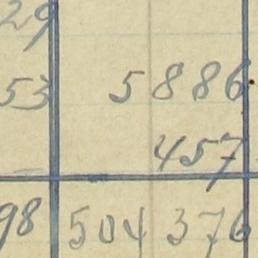 29
53 5886
457
98 504 376